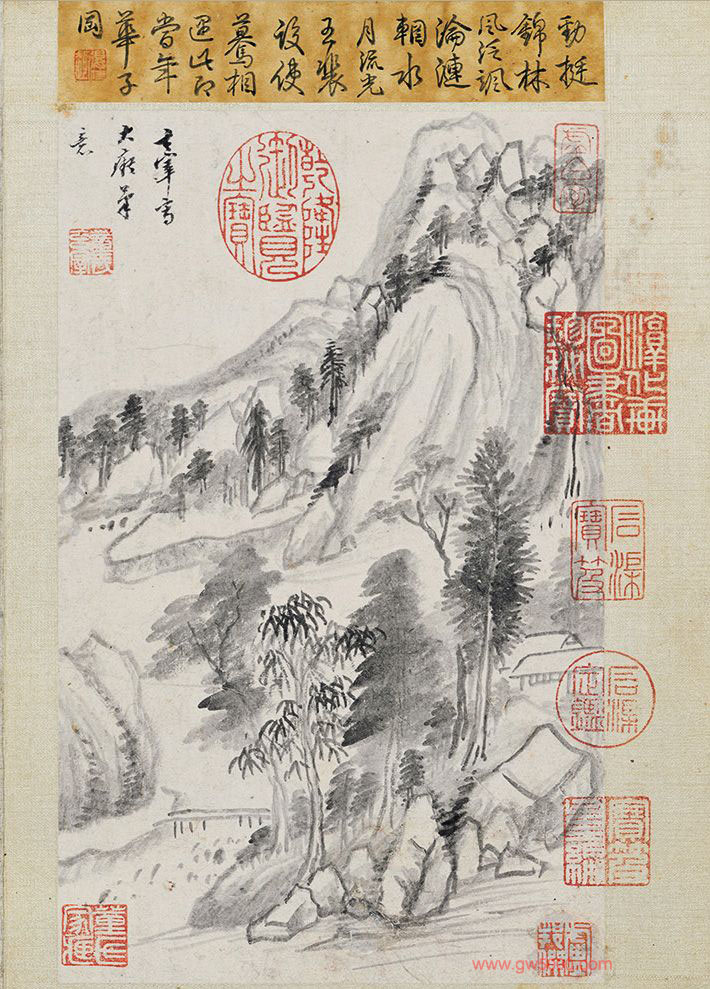 勁挺
錦林
風泛颯
淪漣
輞水
月流光
王裴
設使
驀相
遇此即
當年
華子
岡
玄宰寫
大癡筆
意
乾隆
御覽
之寶
淳化軒
圖書
珍秘寶
石渠
寶笈
石渠
定鑑
寶笈
重編